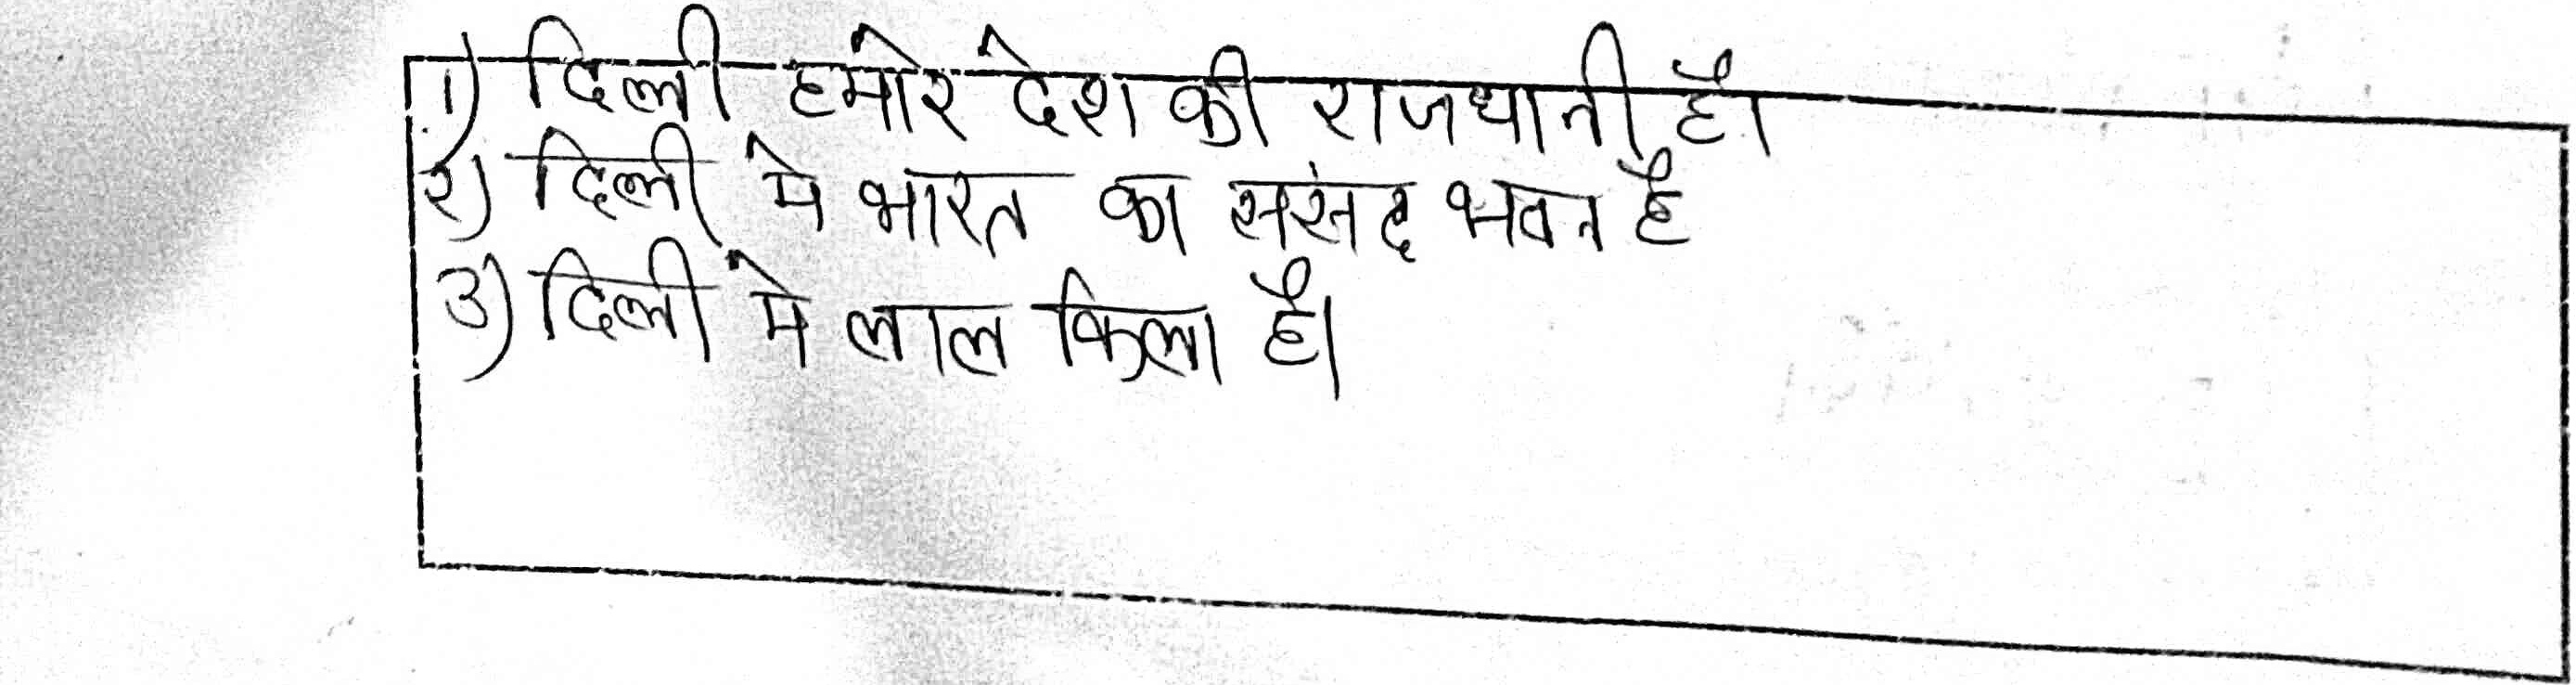 1) दिल्ली हमोर देश की राजधानी है।
२) दिल्ली मे भारत का संसद भवन है
3) दिल्ली मे लाल किला है।